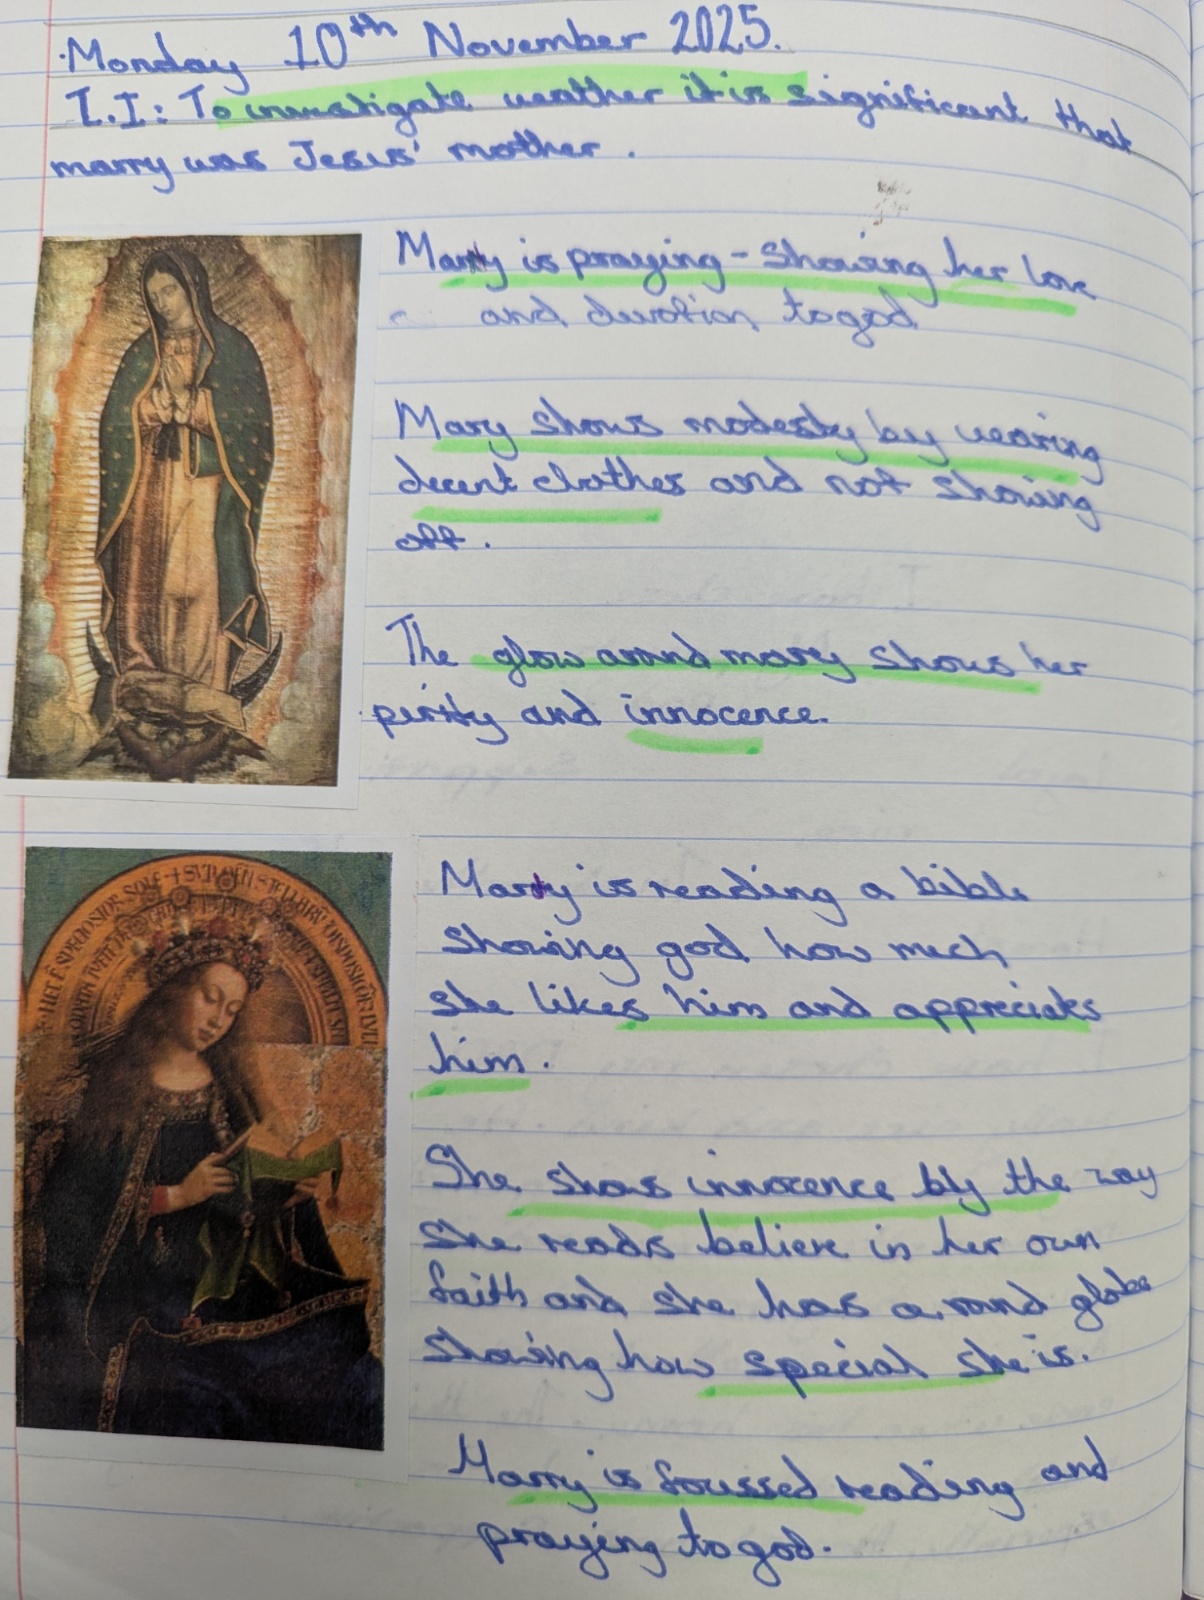 Monday 10th November 2025.
I.I: To investigate weather it is significant that
marry was Jesus' mother.
Mary is praying - showing her love
and devotion to god
Mary shows modesty by wearing
decent clothes and not showing
off.
The glow around mary shows her
purity and innocence.
Mary is reading a bible
showing god how much
she likes him and appreciates
him.
She shows innocence by the way
she reads believe in her own
faith and she has a round globe
showing how special she is.
Marry is foussed reading and
praying to god.